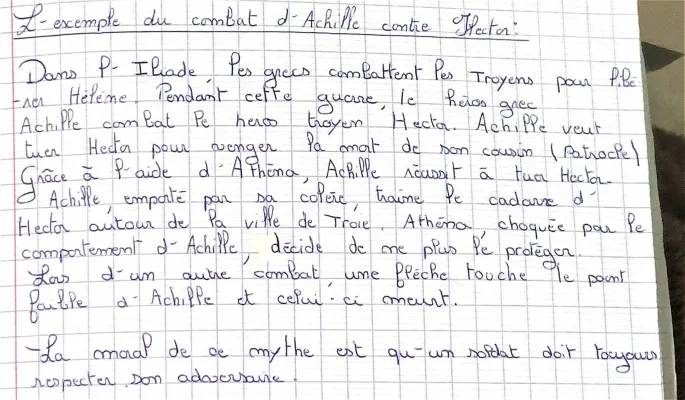 L'exemple du combat d'Achille contre Hector:
Dans l'Iliade, les grecs combattent les Troyens pour libé
-rer Hélène. Pendant cette guerre, le héros grec
Achille combat le heros troyen Hector. Achille veut
tuer Hector pour venger la mort de son cousin (Patrocle)
Grâce à l'aide d'Athéna, Achille réussit à tuer Hector.
Achille, emporté par sa colère, traine le cadavre d'
Hector autour de la ville de Troie. Athéna, choquée par le
comportement d'Achille, décide de ne plus le protéger.
Lors d'un autre combat, une flèche touche le point
faible d'Achille et celui-ci meurt.
-La moral de ce mythe est qu'un soldat doit toujours
respecter son adversaire.